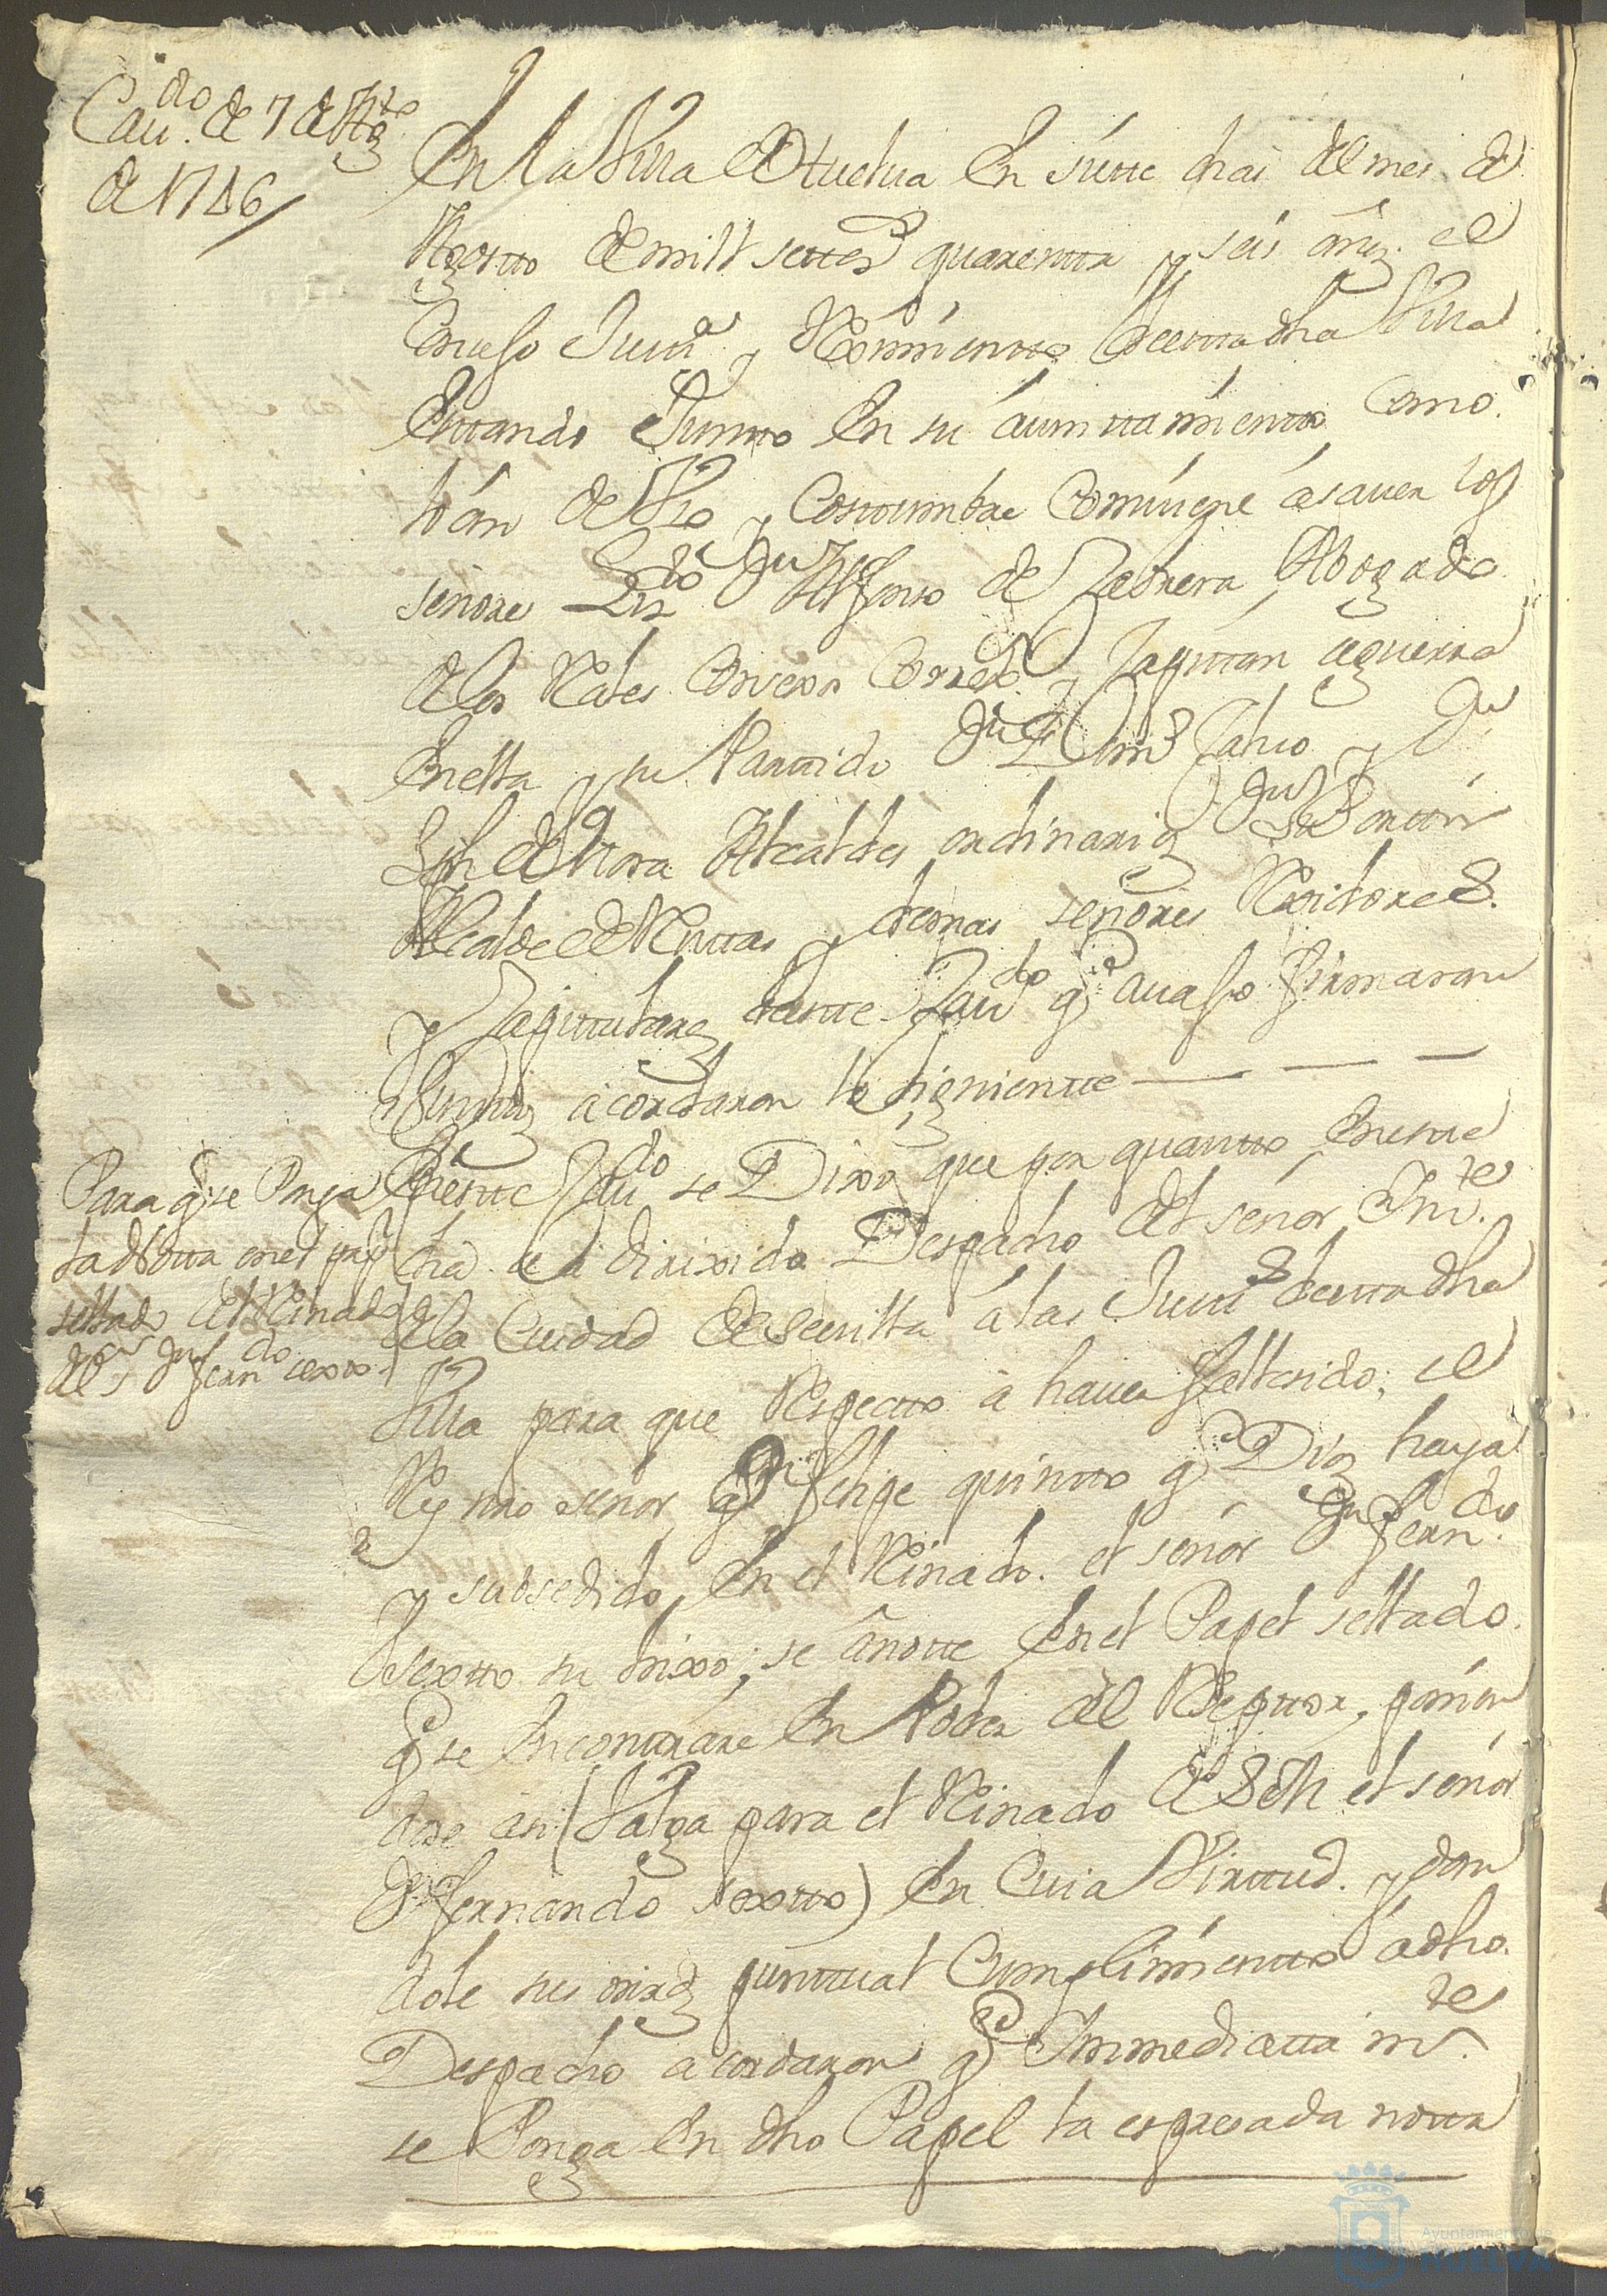 Cavdo de 7 de Agto
de 1746
En la Villa de Huelva en siette dias del mes de
Agosto de mill settezs quarentta y seis años el
Consejo Justia y Reximientto de estta dha Villa
esttando Juntto en su aiunttamientto como
lo án de Uso y Costtumbre Comviene ásaver los
señores Lizdo Dn Alfonso de Cabrera Abogado
de los Rales Consexos Corredor y Capittan aguerra
en ella y su Parttido Dn Domo Calvo y Dn
Jph de Mora Alcaldes ordinarios Dn Sn Bortón
Alcalde de Renttas y demas señores Rexidores
y Capittulares destte Cavdo qe avajo firmaran
Junttos ácordaron lo siguientte
Para qe se Ponga
la Notta en el papl
sellado del Reinado
del sr Dn Ferndo sextto
En estte Cavdo se Dixo que por quantto en estte
dia se á dirixido Despacho del señor Intte
de la Ciudad de Sevilla á las Justias de estta dha
Villa para que Respectto á haver fallesido el
Rey nro señor Dn Felipe quintto qe Dios haya
y subsedido en el Reinado el señor Dn Ferndo
Sextto su hixo; se ánotte en el Papel sellado
qe se encontrare en Poder del Reseptor, ponien
dose asi (Valga para el Reinado de S M el señor
Dn Fernando sextto) en Cuia Virttud y dan
dole sus mrds punttual Cumplimientto ádho
Despacho acordaron qe Immediattamte
se Ponga en dho Papel la espresada notta
Ayuntamiento de
HUELVA